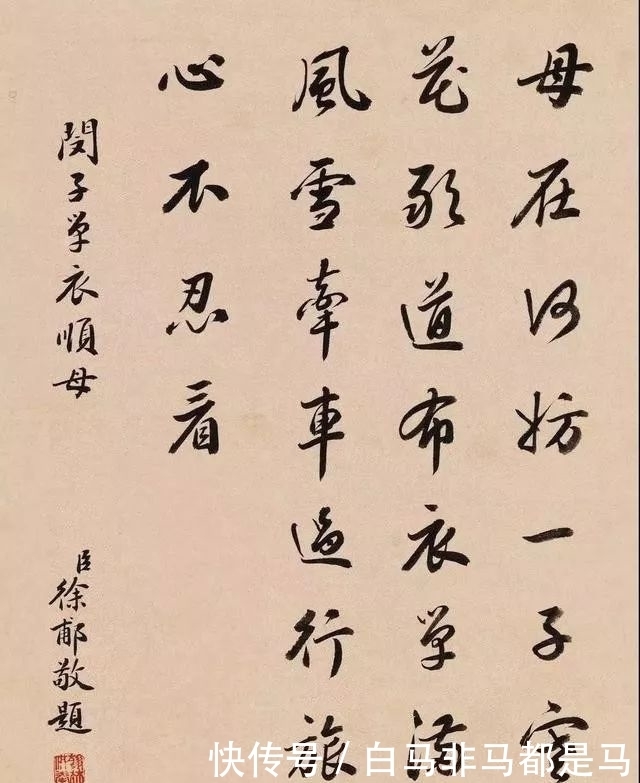 母在何妨一子寒
花敢道布衣單滿
風雪牽車過行旅
心不忍看
閔子單衣順母
臣徐郙敬題
快传号 / 白马非马都是马